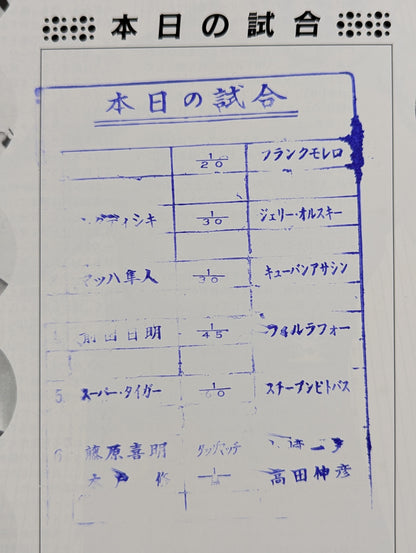 本日の試合
本日の試合
1/20 フランクモレロ
1/30 ジェリー・オルスキー
マッハ隼人 1/30 キューバンアサシン
前田日明 1/45 フォルラフォー
5. スーパー・タイガー 1/60 スチーブンピトバス
6. 藤原喜明 タッグマッチ
木戸 修 高田伸彦